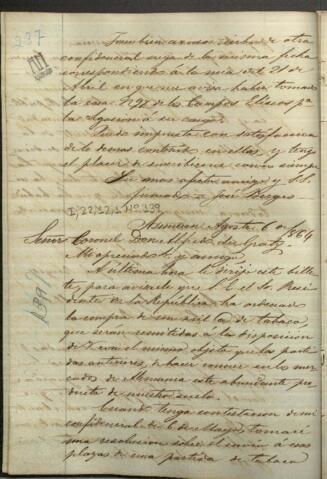 237
Tambien acuso recibo de otra
confidencial suya de la misma fecha
correspondiendo á la mia del 21 de
Abril en que me avisa haber tomado
la casa Nº 27 de los Campos Eliseos pa
la Legacion á su cargo.
Quedo impuesto con satisfaccion
de lo demas contenido en ellas y tengo
el placer de suscribirme como siempre
Su mas afecto amigo y S. S.
firmado José Berges
I, 22, 12, 1 Nº 339
Asuncion Agosto 6 de 1864
Señor Coronel Don Alfredo du Graty
Mi apreciado Sr y amigo
A ultima hora le dirijo este bille
te, para avisarle que S. E. el Sr. Presi
dente de la Republica ha ordenado
la compra de un mil @ de tabaco
que serán remitidas á la disposicion
de V. con el mismo objeto que las parti
das anteriores, de hacer conocer en los mer
cados de Alemania este abundante pro
ducto de nuestro suelo.
Cuando tenga contestacion de mi
confidencial de 6 de Mayo, tomaré
una resolucion sobre el envio á esas
plazas de una partida de tabaco